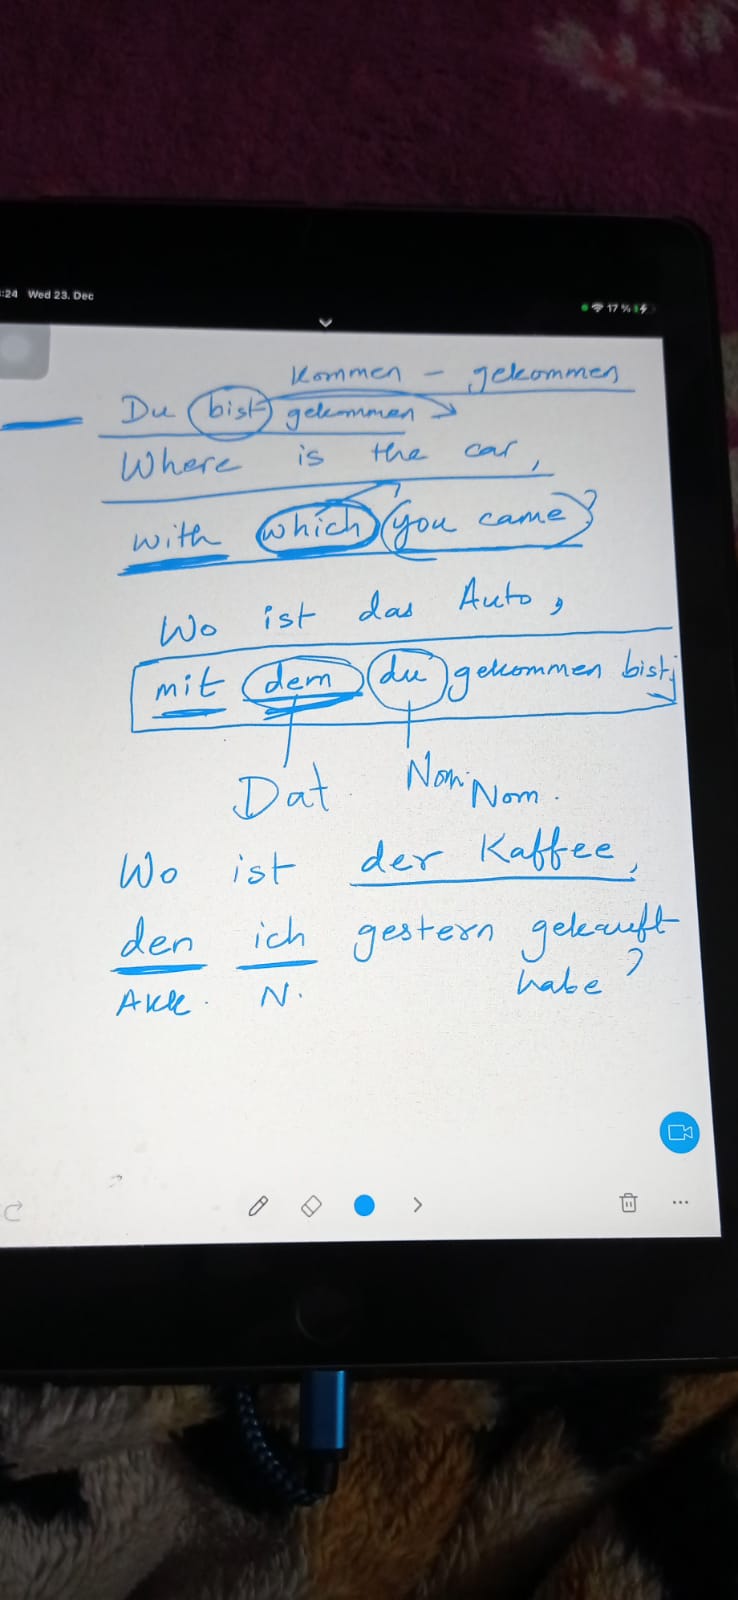 :24 Wed 23. Dec
17 %
Kommen - gekommen
Du bist gekommen
Where is the car,
with which you came?
Wo ist das Auto,
mit dem du gekommen bist?
Dat. Nom. Nom.
Wo ist der Kaffee,
den ich gestern gekauft
habe?
Akk. N.